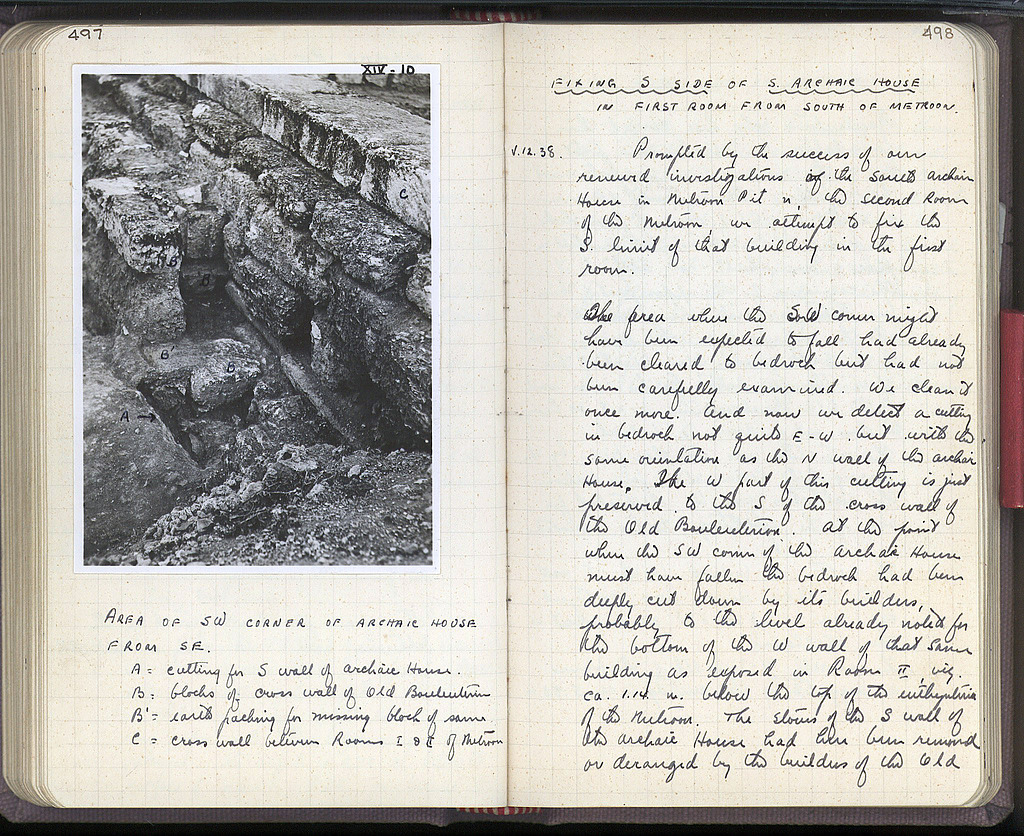 497
XIV-10
C
B
B
B'
B
A →
AREA OF SW CORNER OF ARCHAIC HOUSE
FROM SE.
A = cutting for S wall of archaic House.
B = blocks of cross wall of Old Bouleuterion
B' = earth packing for missing block of same.
C = cross wall between Rooms I & II of Metroon
498
FIXING S SIDE OF S. ARCHAIC HOUSE
IN FIRST ROOM FROM SOUTH OF METROON
V.12.38.
Prompted by the success of our
renewed investigations of the South archaic
House in Metroon Pit in the second Room
of the Metroon, we attempt to fix the
S. limit of that building in the first
room.
The area where the SW corner might
have been expected to fall had already
been cleared to bedrock but had not
been carefully examined. We clean it
once more. And now we detect a cutting
in bedrock not quite E-W but with the
same orientation as the N wall of the archaic
House. The W part of this cutting is just
preserved to the S of the cross wall of
the Old Bouleuterion. At the point
where the SW corner of the Archaic House
must have fallen the bedrock had been
deeply cut down by its builders,
probably to the level already noted for
the bottom of the W wall of that same
building as exposed in Room II, viz.
ca. 1.14 m. below the top of the euthynteria
of the Metroon. The stones of the S wall of
the archaic House had here been removed
or deranged by the builders of the Old